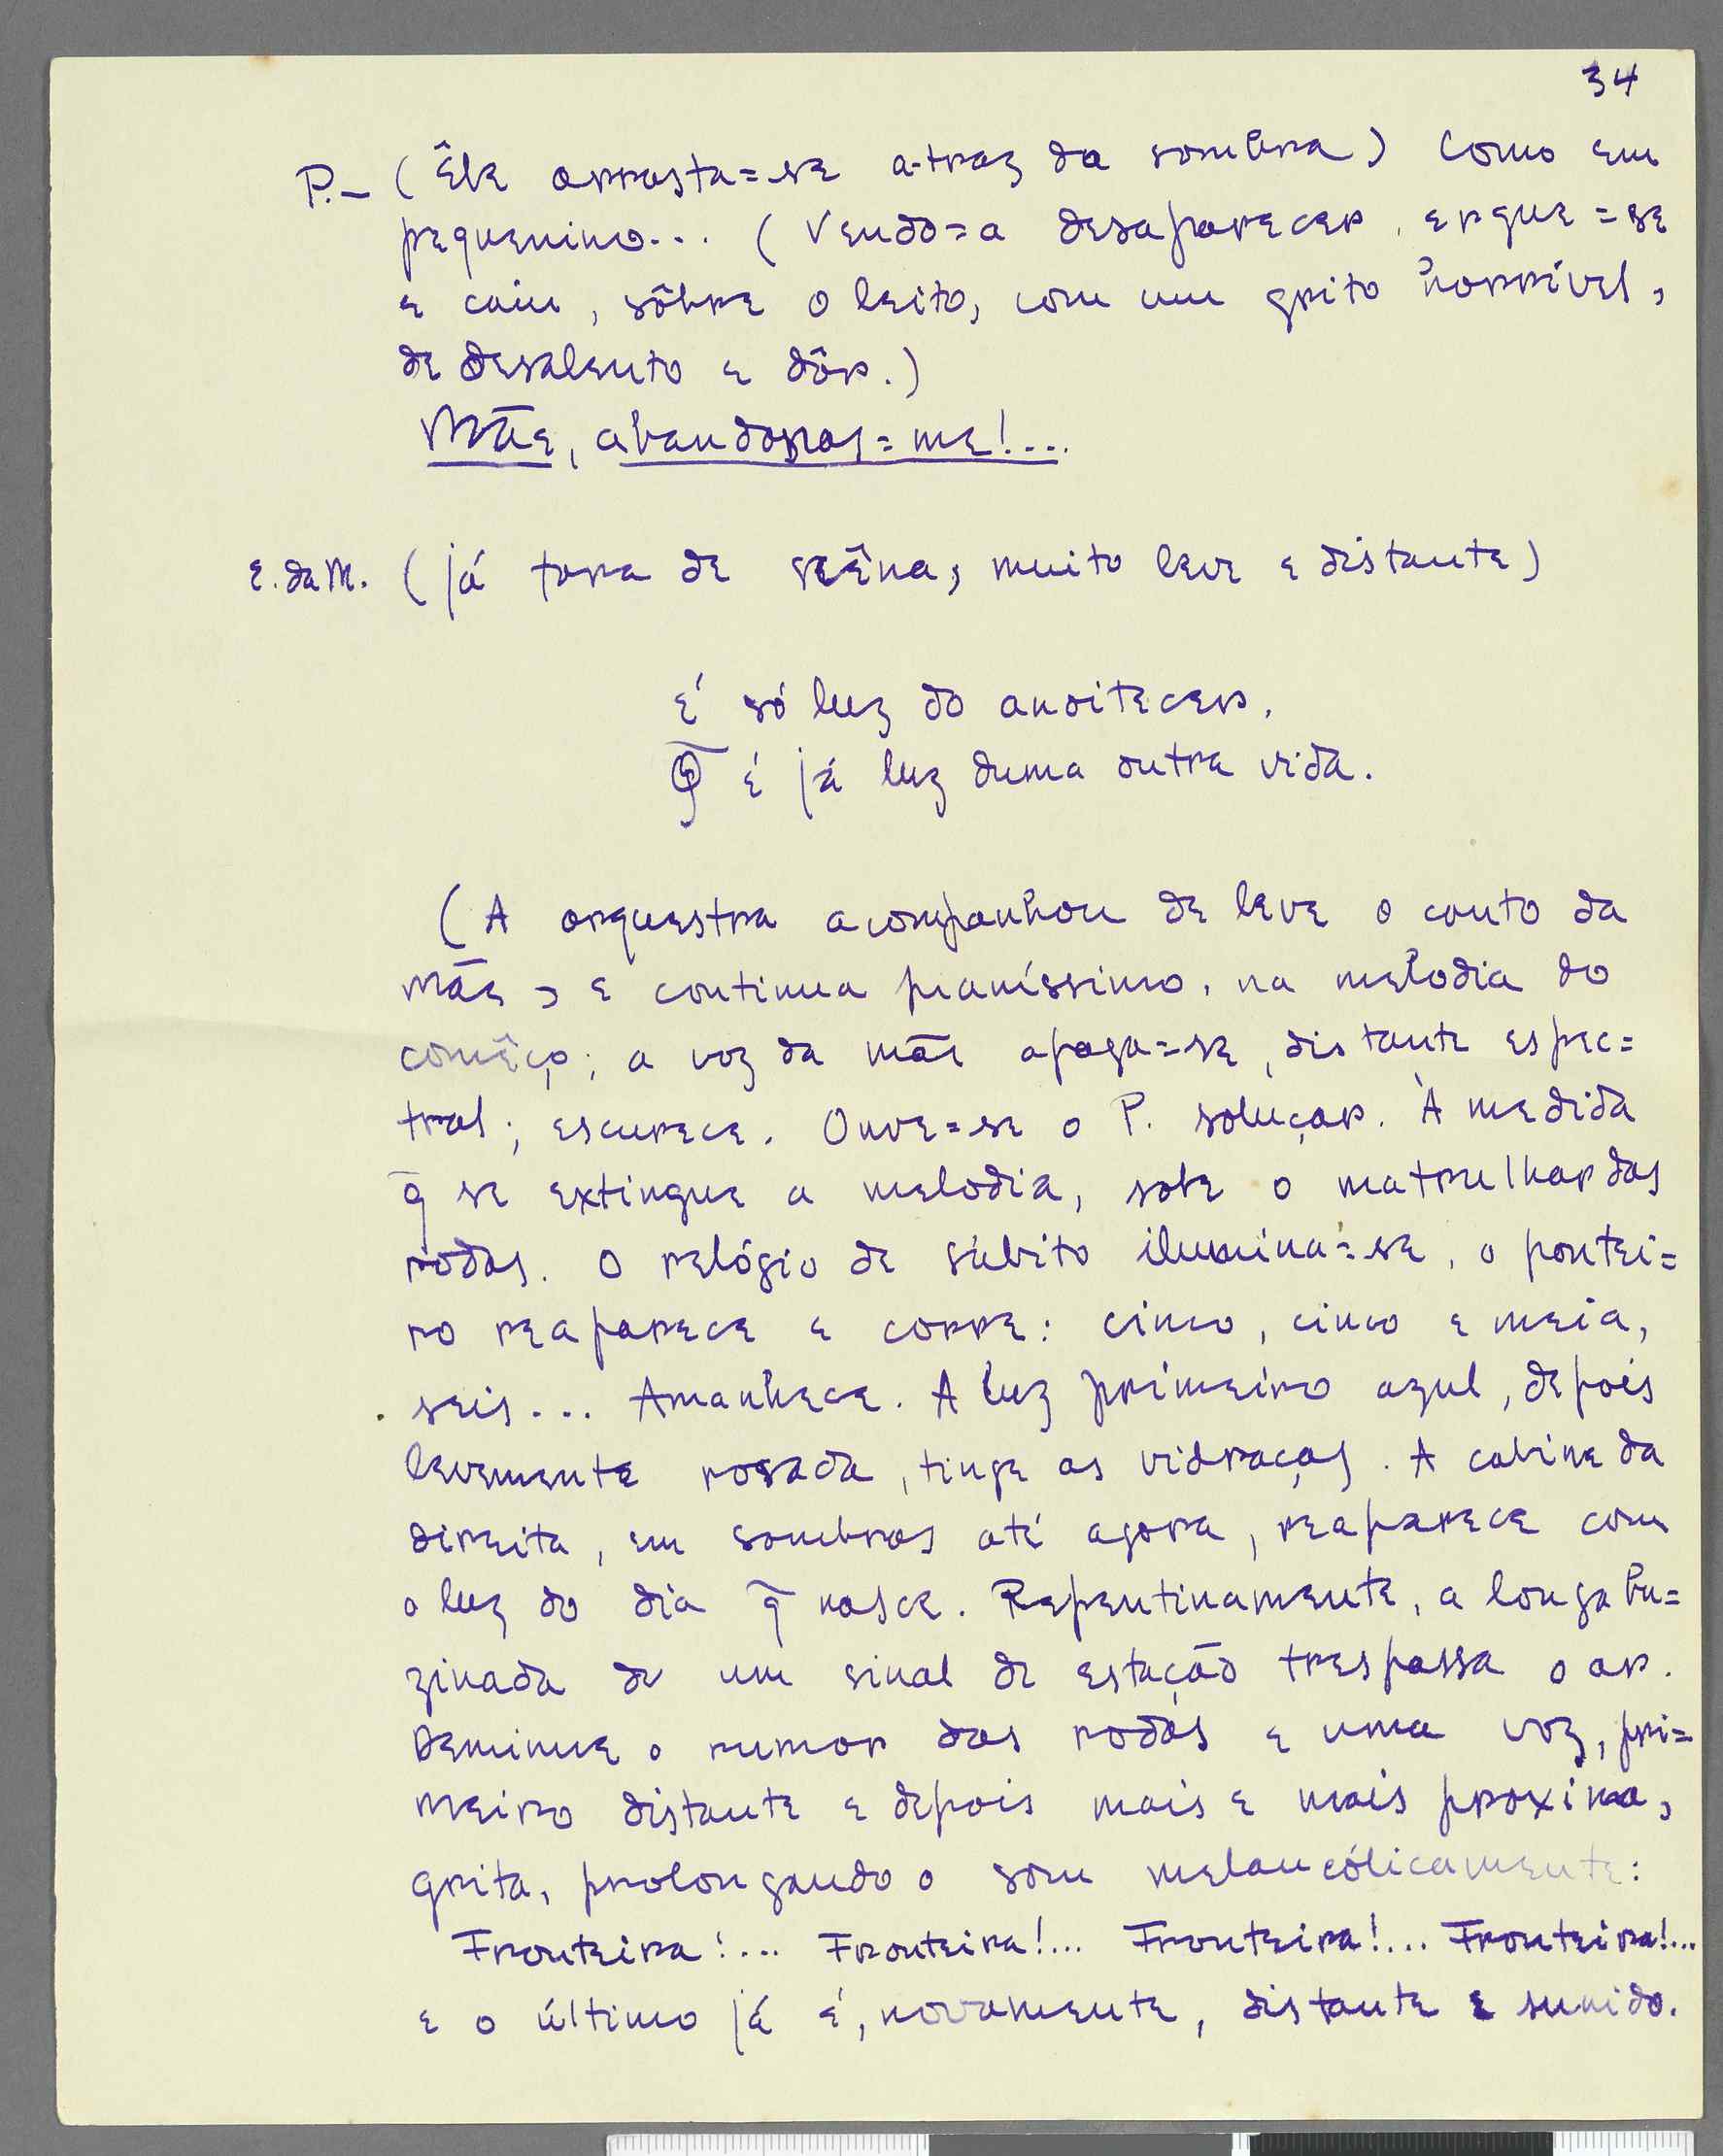 34
P.- (Êle arrasta=se a-traz da sombra) Como em
pequenino... (Vendo=a desaparecer, ergue=se
e caiu, sôbre o leito, com um grito horrível,
de desalento e dôr.)
Mãe, abandonas=me!...
E. da M. (já fora de scêna, muito leve e distante)
É só luz do anoitecer.
Q̃ é já luz duma outra vida.
(A orquestra acompanhou de leve o canto da
mãe, e continua pianíssimo, na melodia do
comêço; a voz da mãe apaga=se, distante espec=
tral; escurece. Ouve=se o P. soluçar. À medida
q̃ se extingue a melodia, sobe o matrulhar das
rodas. O relógio de súbito ilumina=se, o pontei=
ro reaparece e corre: cinco, cinco e meia,
seis... Amanhece. A luz primeiro azul, depois
levemente rosada, tinge as vidraças. A cabine da
direita, em sombras até agora, reaparece com
a luz do dia q̃ nasce. Repentinamente, a longa bu=
zinada de um sinal de estação trespassa o ar.
Deminue o rumor das rodas e uma voz, pri=
meiro distante e depois mais e mais proxima,
grita, prolongando o som melancólicamente:
Fronteira!... Fronteira!... Fronteira!... Fronteira!...
e o último já é, novamente, distante e sumido.